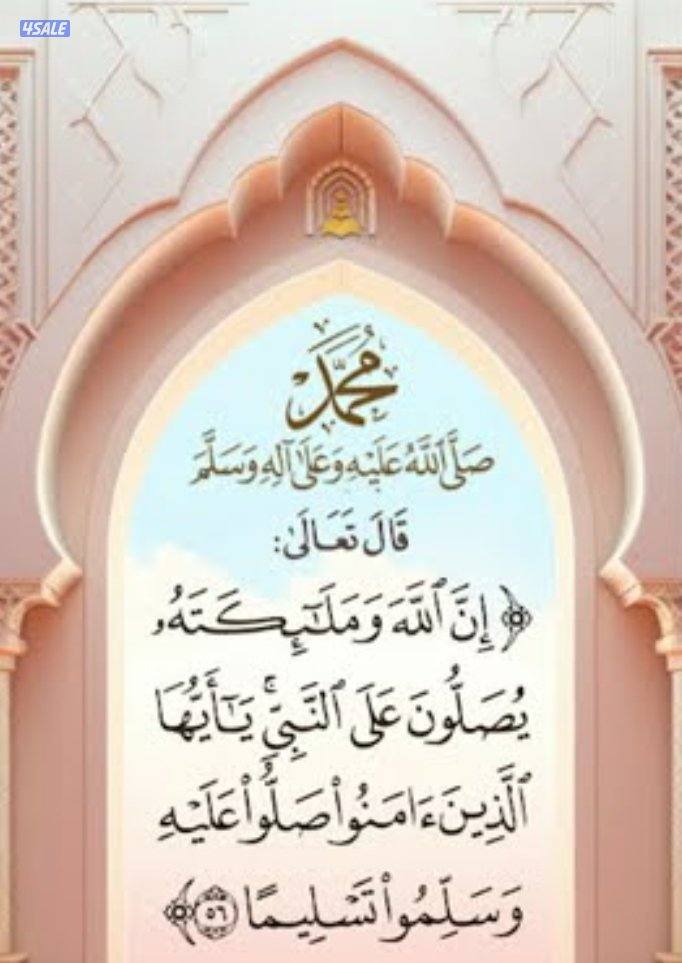 4SALE
مُحَمَّد
صَلَّى اللَّهُ عَلَيْهِ وَعَلَىٰ آلِهِ وَسَلَّمَ
قَالَ تَعَالَىٰ:
﴿ إِنَّ ٱللَّهَ وَمَلَـٰٓئِكَتَهُۥ
يُصَلُّونَ عَلَى ٱلنَّبِىِّۚ يَـٰٓأَيُّهَا
ٱلَّذِينَ ءَامَنُوا۟ صَلُّوا۟ عَلَيْهِ
وَسَلِّمُوا۟ تَسْلِيمًا ٥٦ ﴾